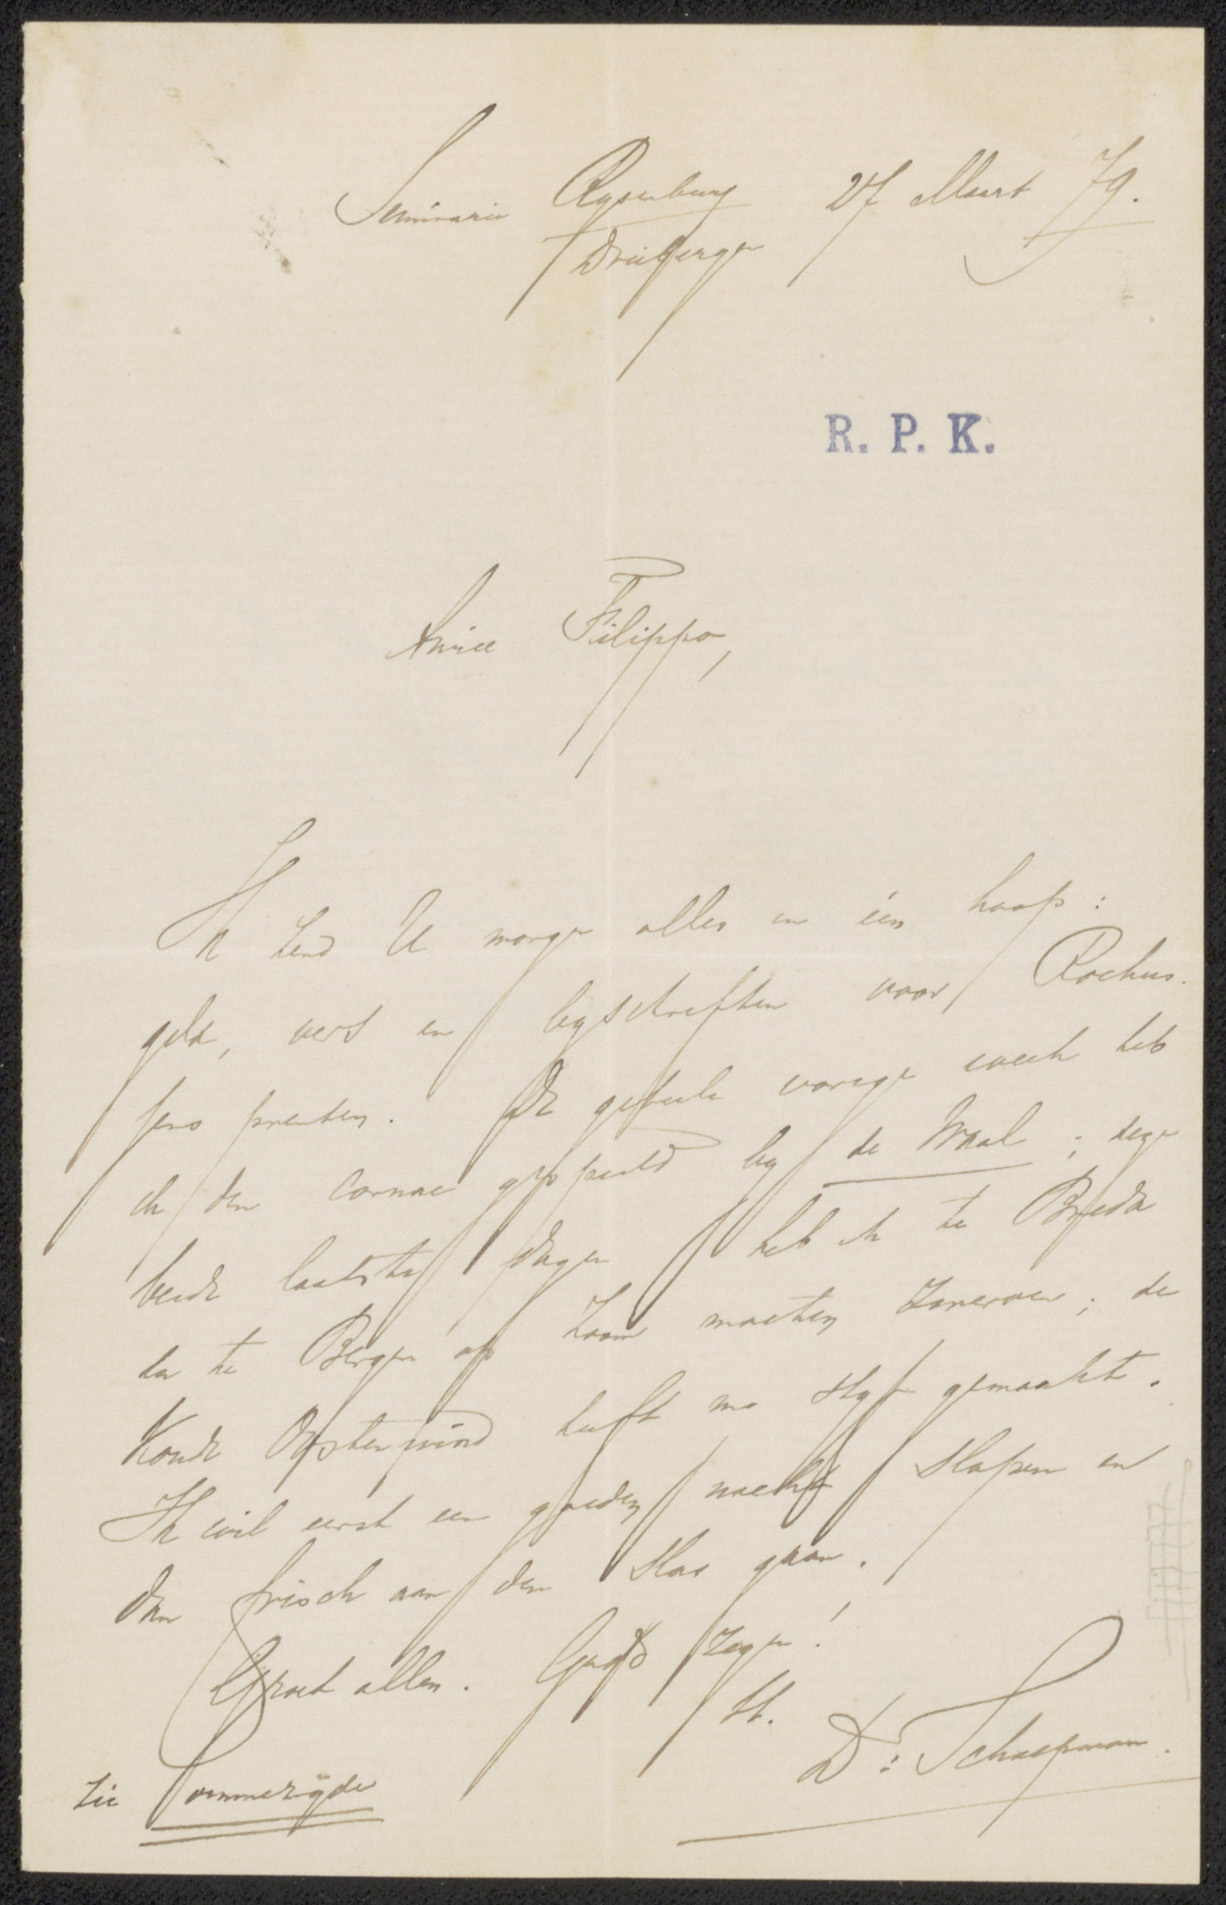 Seminarie Rysenburg 27 Maart 79.
Driebergen
R. P. K.
Amice Filippo,
Ik zend U morgen alles in één hoop:
geld, vers en byschriften voor Rochus-
sens prenten. De geheele vorige week heb
ik den cornac gespeeld by de Waal; deze
beide laatste dagen heb ik te Breda
en te Bergen op Zoom moeten ; de
koude Oostenwind heeft me styf gemaakt.
Ik wil eerst een goeden nacht slapen en
dan frisch aan den slag gaan.
Groet allen. Gods zegen!
tt.
Dr. Schaepman.
zie ommezijde